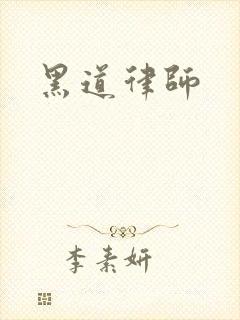 黑道律師
李素妍